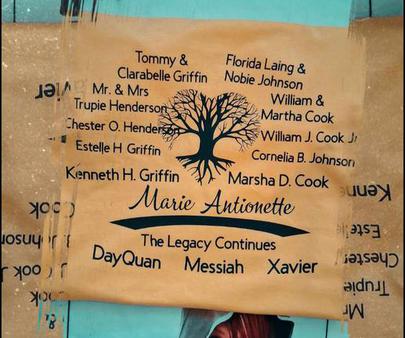 Tommy &
Clarabelle Griffin
Florida Laing &
Nobie Johnson
Mr. & Mrs
Trupie Henderson
William &
Martha Cook
Chester O. Henderson
William J. Cook Jr
Estelle H Griffin
Cornelia B. Johnson
Kenneth H. Griffin
Marsha D. Cook
Marie Antionette
The Legacy Continues
DayQuan Messiah Xavier